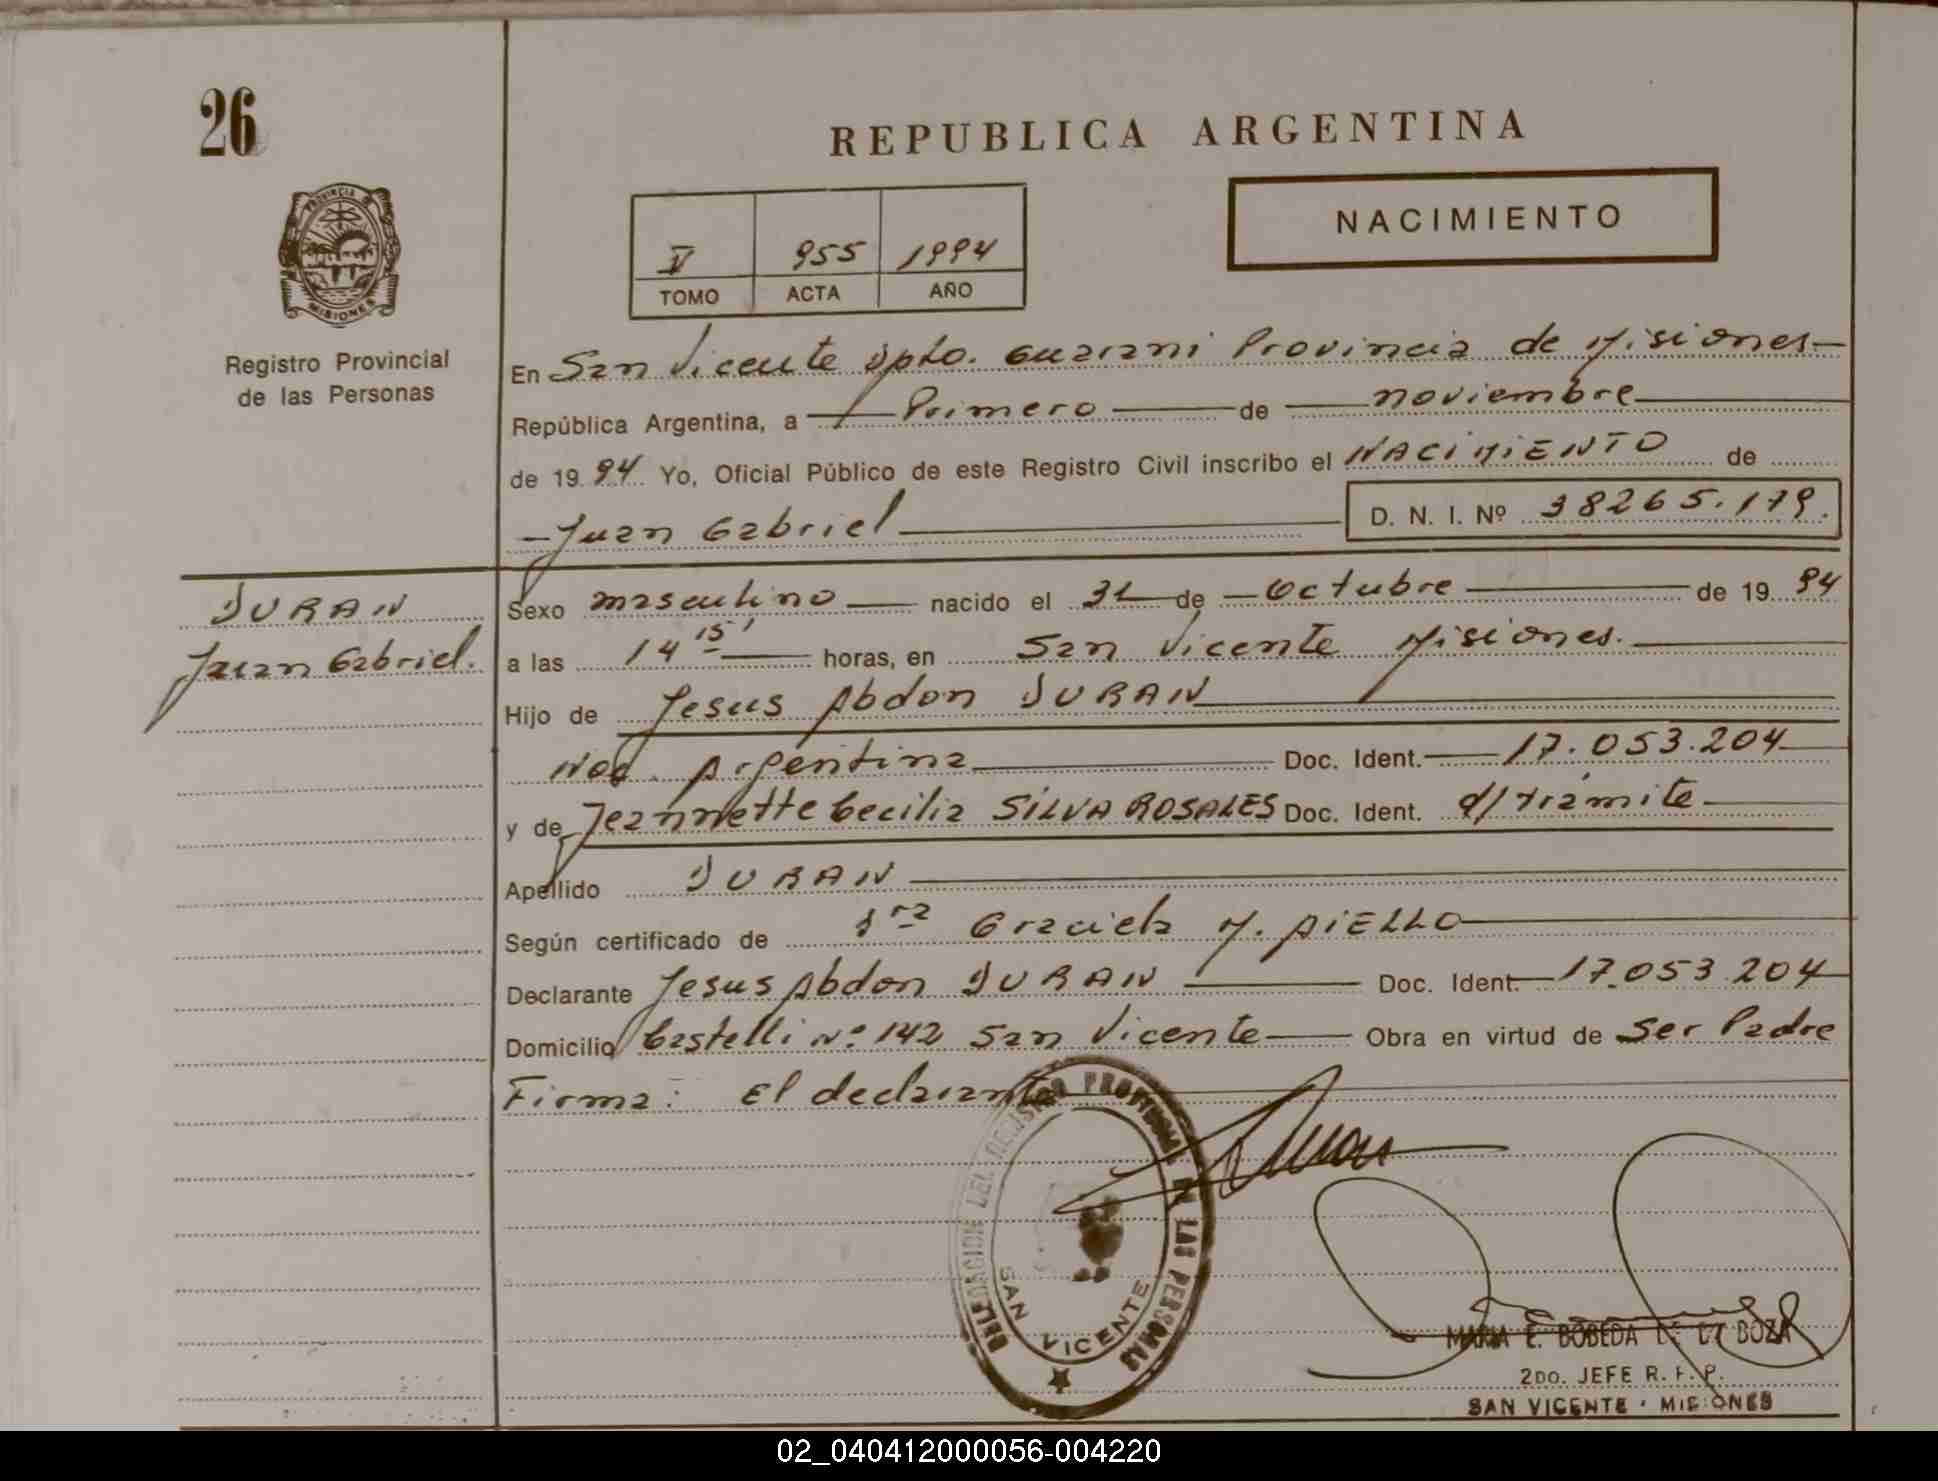 26
REPUBLICA ARGENTINA
PROVINCIA D
MISIONES
Registro Provincial
de las Personas
V 955 1994
TOMO ACTA AÑO
NACIMIENTO
En San Vicente Dpto. Guarani Provincia de Misiones
República Argentina, a Primero de noviembre
de 1994 Yo, Oficial Público de este Registro Civil inscribo el NACIMIENTO de
Juan Gabriel D. N. I. Nº 38265.179.
DURAN
Juan Gabriel.
Sexo masculino nacido el 31 de Octubre de 1994
a las 14 15' horas, en San Vicente Misiones.
Hijo de Jesus Abdon DURAN
Nac. Argentina Doc. Ident. 17.053.204
y de Jeannette Cecilia SILVA ROSALES Doc. Ident. d/trámite
Apellido DURAN
Según certificado de Dra Graciela M. AIELLO
Declarante Jesus Abdon DURAN Doc. Ident. 17.053.204
Domicilio Castelli Nº 142 San Vicente Obra en virtud de Ser Padre
Firma: El declarante
DELEGACION DEL REGISTRO PROVINCIAL DE LAS PERSONAS
SAN VICENTE
MARIA E. BOBEDA DE
2DO. JEFE R. P. P.
SAN VICENTE - MISIONES
02_040412000056-004220